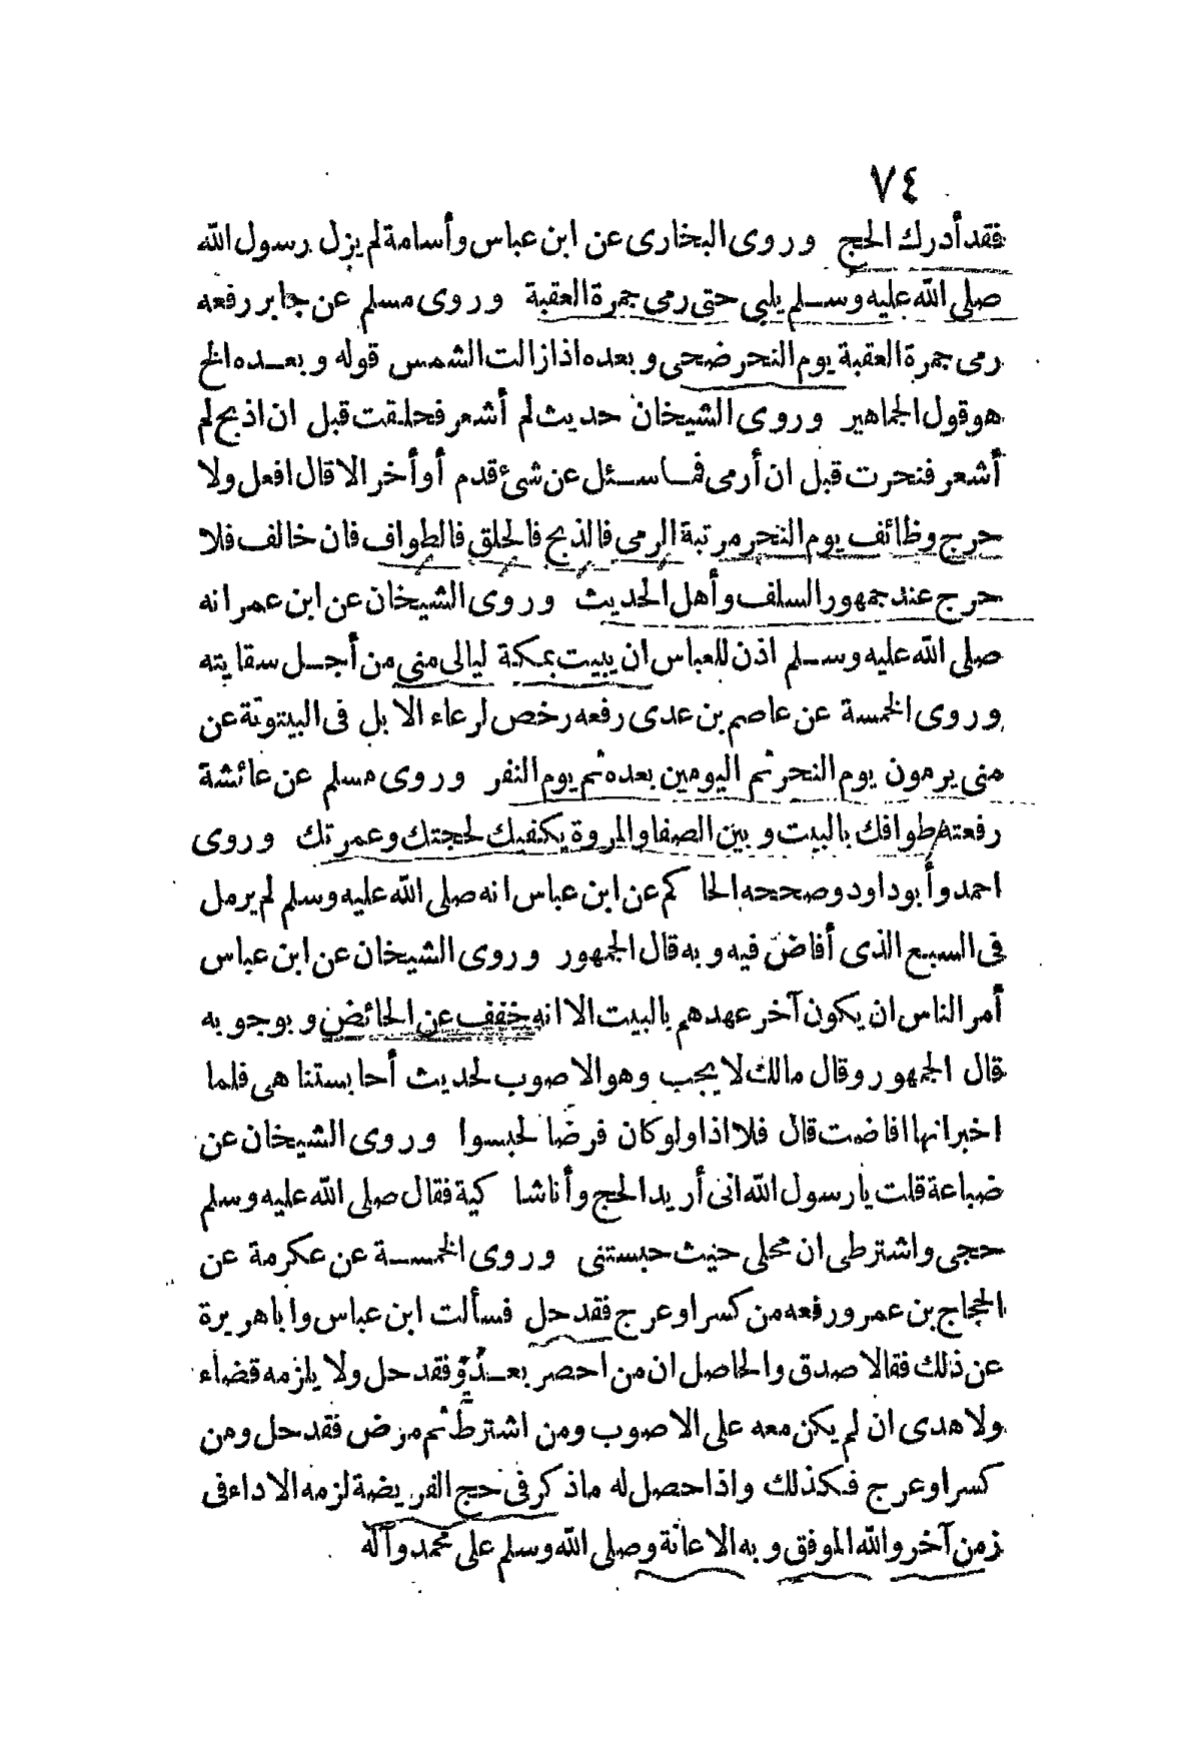 ٧٤
فقد أدرك الحج وروى البخارى عن ابن عباس وأسامة لم يزل رسول الله
صلى الله عليه وسلم يلبي حتى رمى جمرة العقبة وروى مسلم عن جابر رفعه
رمى جمرة العقبة يوم النحر ضحى وبعده اذا زالت الشمس قوله وبعده الخ
هو قول الجماهير وروى الشيخان حديث لم أشعر فحلقت قبل ان اذبح لم
أشعر فنحرت قبل ان أرمى فما سئل عن شئ قدم أو أخر الا قال افعل ولا
حرج وظائف يوم النحر مرتبة الرمى فالذبح فالحلق فالطواف فان خالف فلا
حرج عند جمهور السلف وأهل الحديث وروى الشيخان عن ابن عمر انه
صلى الله عليه وسلم اذن للعباس ان يبيت بمكة ليالى منى من أجل سقايته
وروى الخمسة عن عاصم بن عدى رفعه رخص لرعاء الابل فى البيتوتة عن
منى يرمون يوم النحر ثم اليومين بعده ثم يوم النفر وروى مسلم عن عائشة
رفعته طوافك بالبيت وبين الصفا والمروة يكفيك لحجتك وعمرتك وروى
احمد وأبو داود وصححه الحاكم عن ابن عباس انه صلى الله عليه وسلم لم يرمل
فى السبع الذى أفاض فيه وبه قال الجمهور وروى الشيخان عن ابن عباس
أمر الناس ان يكون آخر عهدهم بالبيت الا انه خفف عن الحائض وبوجوبه
قال الجمهور وقال مالك لا يجب وهو الاصوب لحديث أحابستنا هى فلما
اخبر انها افاضت قال فلا اذا ولو كان فرضا لحبسوا وروى الشيخان عن
ضباعة قلت يا رسول الله انى أريد الحج وأنا شاكية فقال صلى الله عليه وسلم
حجى واشترطى ان محلى حيث حبستنى وروى الخمسة عن عكرمة عن
الحجاج بن عمرو رفعه من كسر او عرج فقد حل فسألت ابن عباس وابا هريرة
عن ذلك فقالا صدق والحاصل ان من احصر بعدو فقد حل ولا يلزمه قضاء
ولا هدى ان لم يكن معه على الاصوب ومن اشترط ثم مرض فقد حل ومن
كسر او عرج فكذلك واذا حصل له ما ذكر فى حج الفريضة لزمه الاداء فى
زمن آخر والله الموفق وبه الاعانة وصلى الله وسلم على محمد وآله